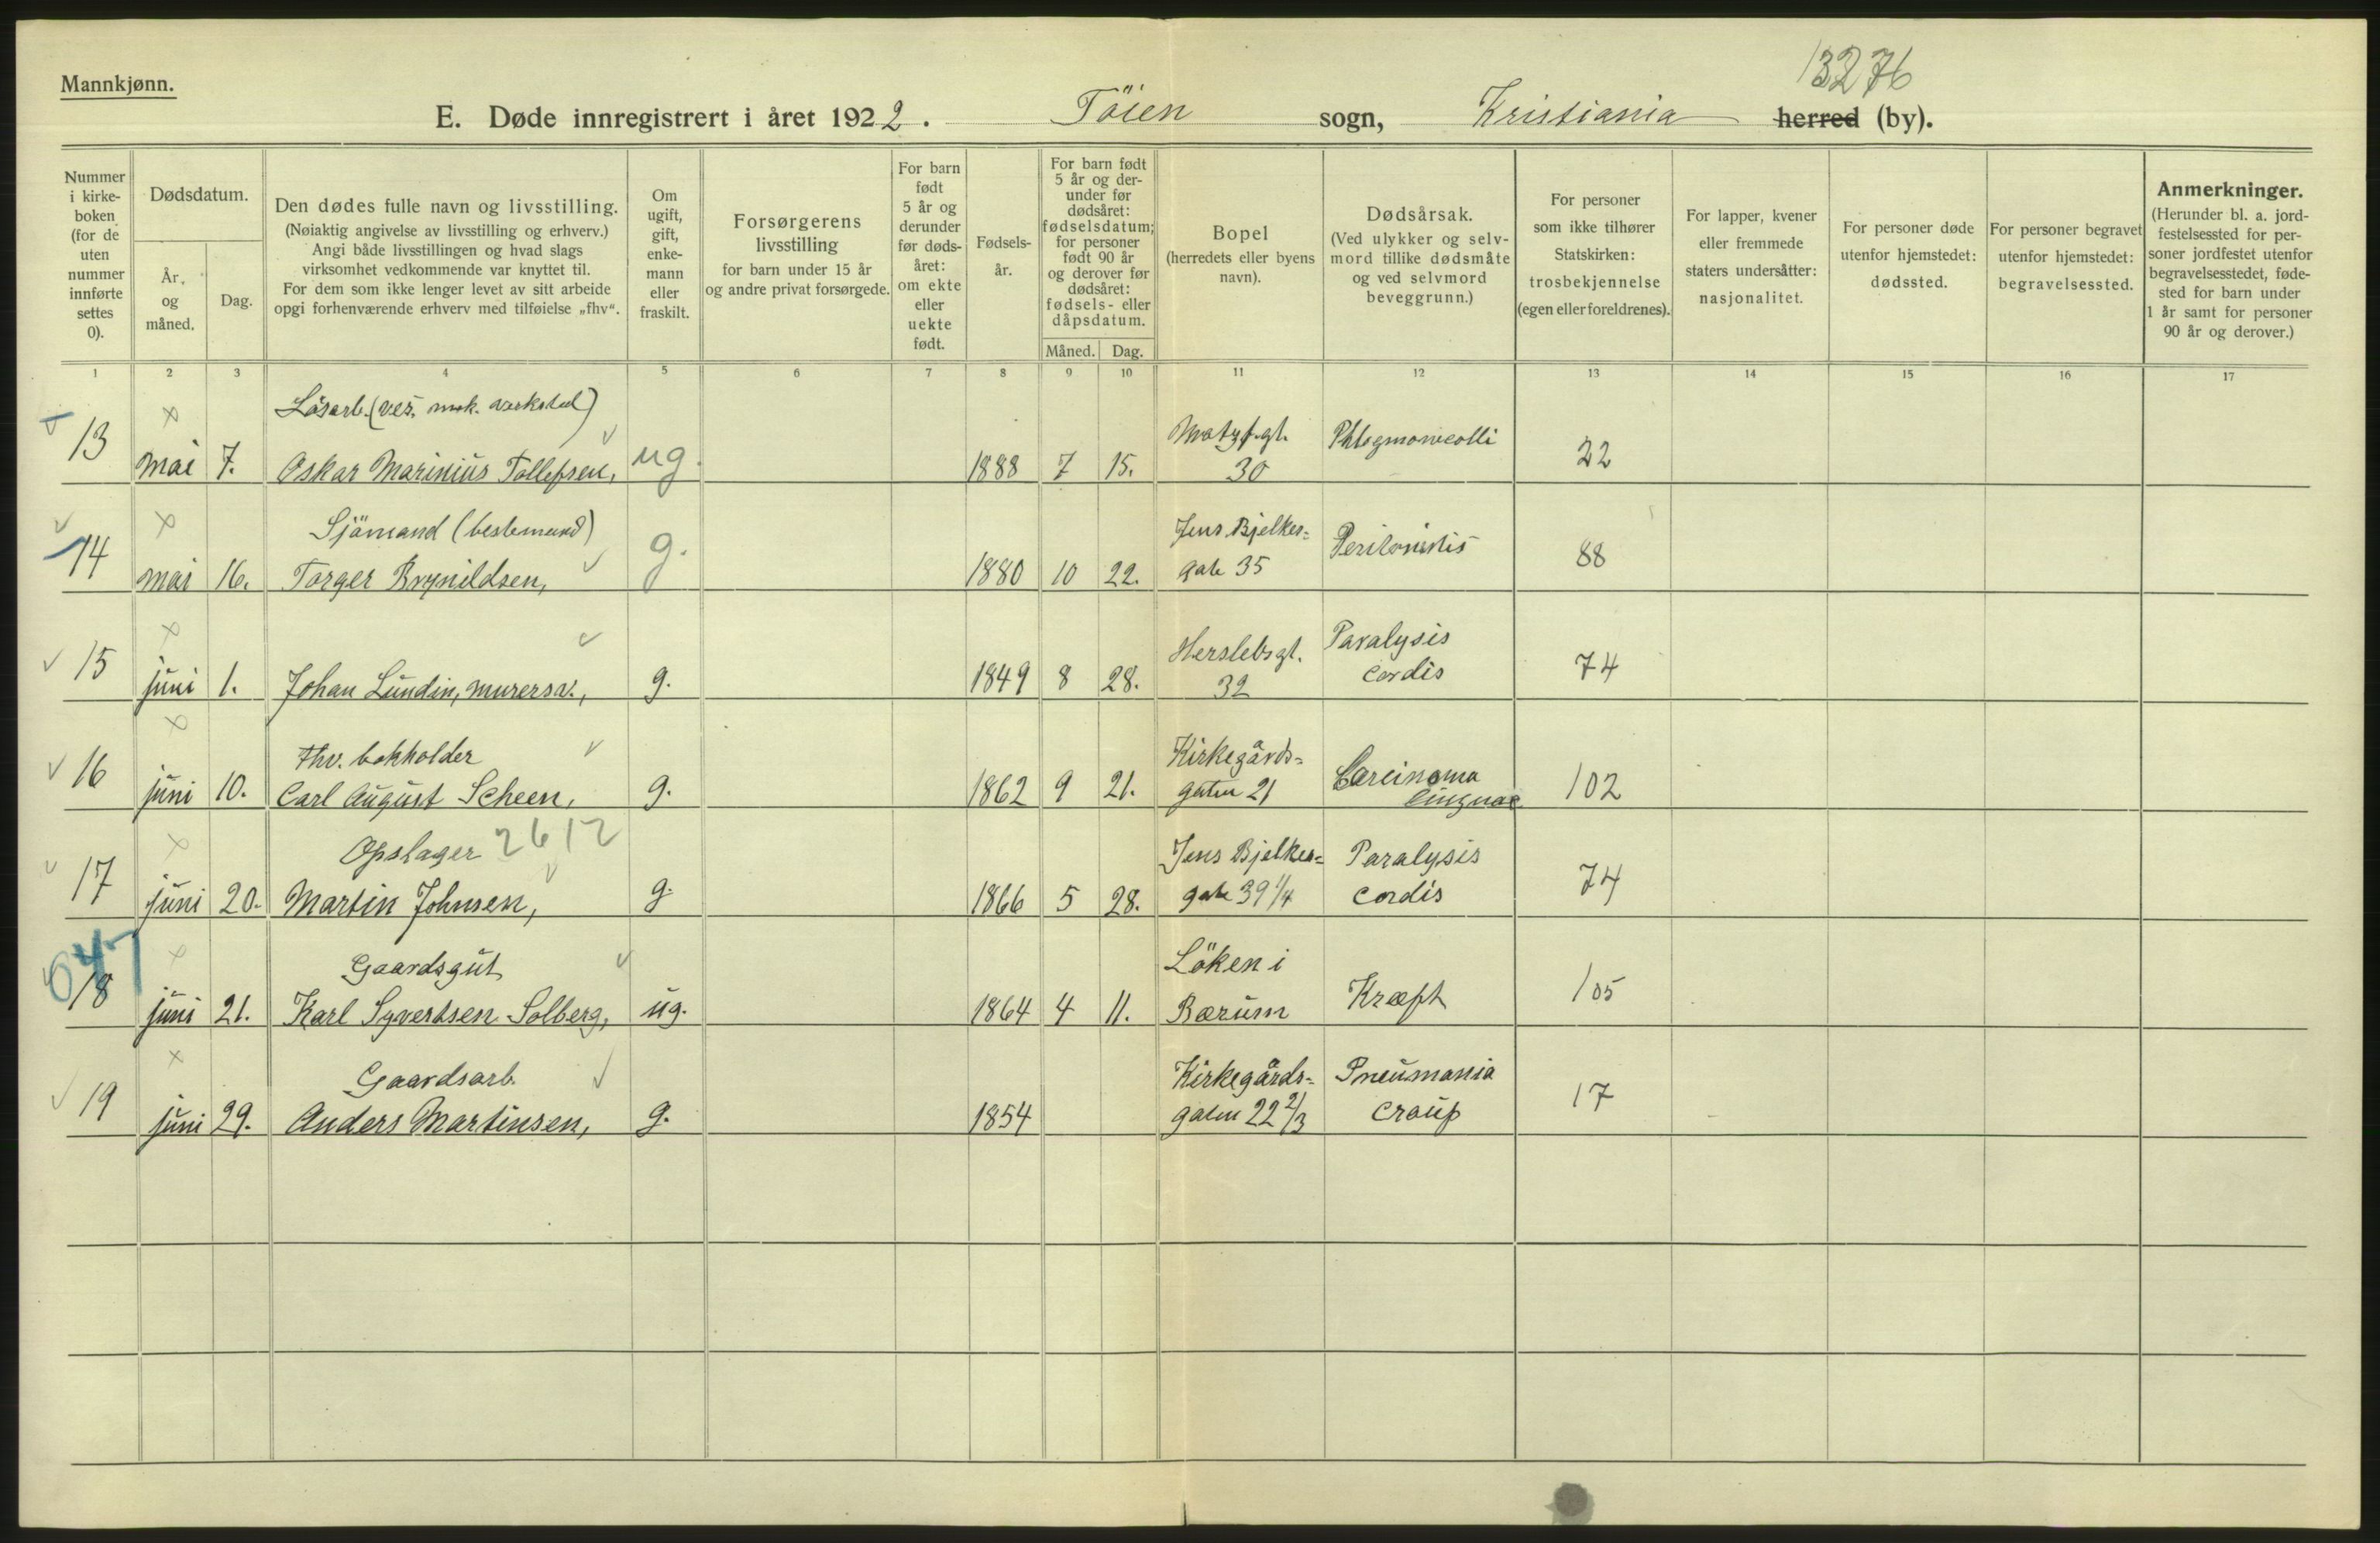 13276
Mannkjønn.
E. Døde innregistrert i året 1922. Töien sogn, Kristiania herred (by).
Nummer i kirke- boken (for de uten nummer innførte settes 0).
Dødsdatum.
År, og måned.
Dag.
Den dødes fulle navn og livsstilling.
(Nøiaktig angivelse av livsstilling og erhverv.)
Angi både livsstillingen og hvad slags
virksomhet vedkommende var knyttet til.
For dem som ikke lenger levet av sitt arbeide
opgi forhenværende erhverv med tilføielse „fhv“.
Om ugift, gift, enke- mann eller fraskilt.
Forsørgerens livsstilling
for barn under 15 år
og andre privat forsørgede.
For barn født 5 år og derunder før døds- året: om ekte eller uekte født.
Fødsels- år.
For barn født 5 år og der- under før dødsåret: fødselsdatum; for personer født 90 år og derover før dødsåret: fødsels- eller dåpsdatum.
Måned. Dag.
Bopel
(herredets eller byens navn).
Dødsårsak.
(Ved ulykker og selv- mord tillike dødsmåte og ved selvmord beveggrunn.)
For personer som ikke tilhører Statskirken: trosbekjennelse (egen eller foreldrenes).
For lapper, kvener eller fremmede staters undersåtter: nasjonalitet.
For personer døde utenfor hjemstedet: dødssted.
For personer begravet utenfor hjemstedet: begravelsessted.
Anmerkninger.
(Herunder bl. a. jord- festelsessted for per- soner jordfestet utenfor begravelsesstedet, føde- sted for barn under 1 år samt for personer 90 år og derover.)
1 2 3 4 5 6 7 8 9 10 11 12 13 14 15 16 17
Lösarb. (ves. mek. verksted)
13 mai 7. Oskar Marinius Tollefsen, ug. 1888 7 15. 30 22
Sjömand (bestemand)
14 mai 16. Torger Brynildsen, g. 1880 10 22. Jens Bjelkes= gate 35 Peritonitis 88
15 juni 1. Johan Lundin, murersv., g. 1849 8 28. Herslebsgt. 32 Paralysis cordis 74
Fhv. bokholder
16 juni 10. Carl August Scheen, g. 1862 9 21. Kirkegårds= gaten 21 Carcinoma linguae 102
Opslager 2612
17 juni 20. Martin Johnsen, g. 1866 5 28. Jens Bjelkes= gate 39 1/4 Paralysis cordis 74
647
Gaardsgut
18 juni 21. Karl Syvertsen Solberg, ug. 1864 4 11. Löken i Bærum Kræft 105
Gaardsarb.
19 juni 29. Anders Martinsen, g. 1854 Kirkegårds= gaten 22 2/3 Pneumonia croup 17